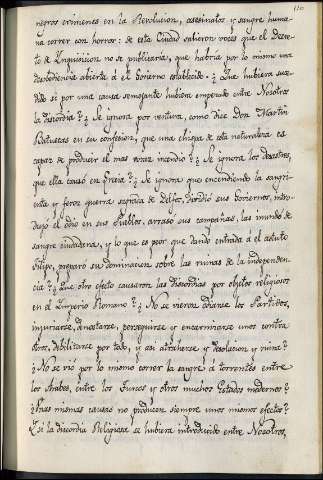 110
negros crimenes en la Revolucion, asesinatos y sangre huma-
na correr con horror: de esta Ciudad salieron voces que el Decre-
to de Inquisicion no se publicaria, que habria por lo mismo una
desobediencia abierta á el Govierno establecido: ¿Que hubiera suce-
dido si por una causa semejante hubiera empezado entre Nosotros
la discordia? ¿Se ignora por ventura, como dice Don Martin
Batuecas en su confesion, que una chispa de esta naturaleza es
capaz de producir el mas voraz incendio? ¿Se ignora los desastres,
que ella causó en Grecia? ¿Se ignora que encendiendo la sangri-
enta y feroz guerra sagrada de Delfos, dividió sus Goviernos, intro-
dujo el odio en sus Pueblos, arrasó sus campañas, las inundó de
sangre ciudadana, y lo que es peor que dando entrada á el astuto
Filipo, preparó su dominacion sobre las ruinas de la independen-
cia? ¿Que otro efecto causaron las discordias por objetos religiosos
en el Imperio Romano? ¿No se vieron odiarse los Partidos,
injuriarse, denostarse, perseguirse y encarnizarse unos contra
otros, debilitarse por todo, y asi atraherse su desolacion y ruina?
¿No se vió por lo mismo correr la sangre á torrentes entre
los Arabes, entre los Turcos y otros muchos Estados modernos?
¿Unas mismas causas no producen siempre unos mismos efectos?
Y si la discordia Religiosa se hubiera introducido entre Nosotros,